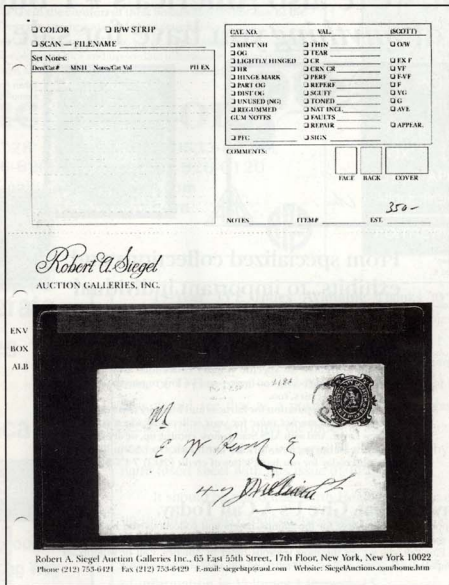 ❑ COLOR ❑ B/W STRIP
❑ SCAN — FILENAME
Set Notes:
Den/Cat# MNH Notes/Cat Val PH EX
CAT. NO. VAL. (SCOTT)
❑ MINT NH ❑ THIN ❑ O/W
❑ OG ❑ TEAR
❑ LIGHTLY HINGED ❑ CR ❑ EX F
❑ HR ❑ CRN CR ❑ VF
❑ HINGE MARK ❑ PERF ❑ F-VF
❑ PART OG ❑ REPERF ❑ F
❑ DIST OG ❑ SCUFF ❑ VG
❑ UNUSED (NG) ❑ TONED ❑ G
❑ REGUMMED ❑ NAT INCL ❑ AVE
GUM NOTES ❑ FAULTS
❑ REPAIR ❑ APPEAR.
❑ PFC ❑ SIGN
COMMENTS:
FACE BACK COVER
350-
NOTES ITEM# EST.
Robert A. Siegel
AUCTION GALLERIES, INC.
ENV
BOX
ALB
M
E W
47 William
Robert A. Siegel Auction Galleries Inc., 65 East 55th Street, 17th Floor, New York, New York 10022
Phone (212) 753-6421 Fax (212) 753-6429 E-mail: siegelstp@aol.com Website: SiegelAuctions.com/home.htm